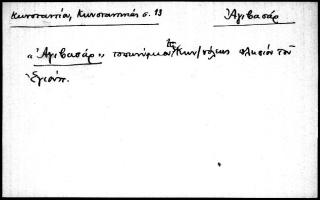 Κωνσταντίας, Κωνσταντινιάς σ. 13 Ἀγιβασάρ
«Ἀγιβασάρ» τοπωνύμιον τῆς Κων/πόλεως πλησίον τοῦ
Ἐγιούπ.